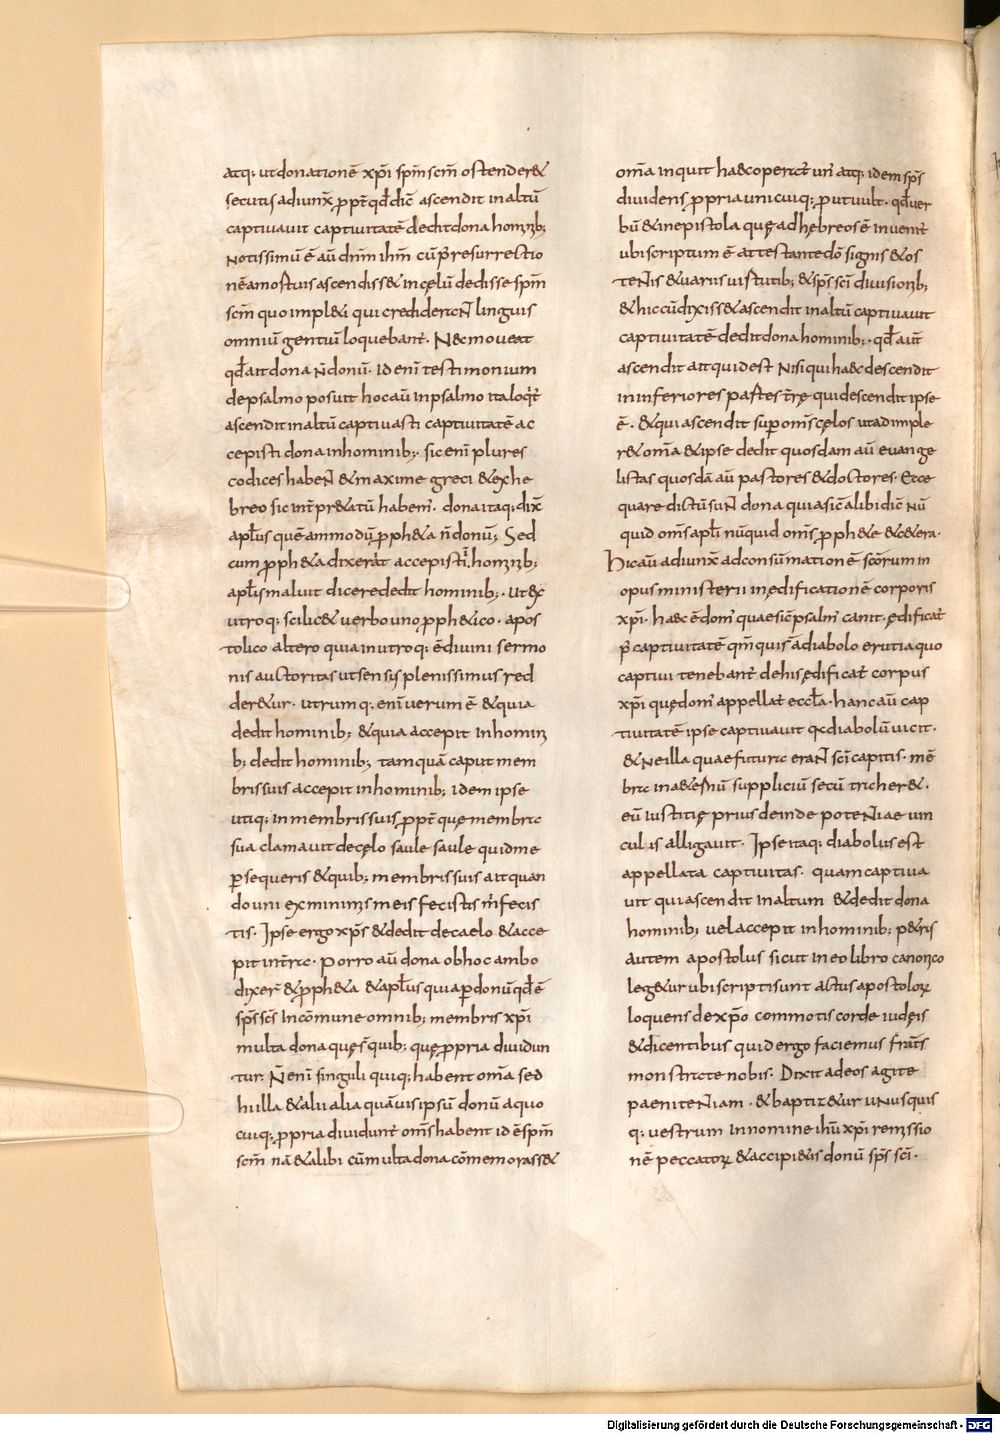 atq; ut donationē xp̄i sp̄m sc̄m ostender&
secutis adiunx̄ ꝓpt̄ qđ dic̄ ascendit in altū
captivavit captivitatē dedit dona hominib;
Notissimū ē aū dn̄m ih̄m cū p̄ resurrectio
nē a mortuis ascendiss& in cęlū dedisse sp̄m
sc̄m quo impl&i qui crediderant linguis
omniū gentiū loquebant̄. Nec moveat
qđ ait dona n̄ donū. id eni testimonium
de psalmo posuit hoc aū in psalmo ita loqr̄
ascendit in altū captivasti captivitatē ac
cepisti dona in hominib;. sic eni plures
codices habent & maxime greci & ex he
breo sic int̄pr&atū habem̄. dona itaq; dix̄
apl̄us quē ammodū ꝓph&a n̄ donū; Sed
cum ꝓph&a dixerat accepisti in hominib;
apl̄s maluit dicere dedit hominib;. ut ex
utroq; scilic& verbo uno ꝓph&ico. apos
tolico altero quia in utroq; ē divini sermo
nis auctoritas ut sensus plenissimus red
der&ur. utrumq; eni verum ē & quia
dedit hominib; & quia accepit in homini
b; dedit hominib; tamquā caput mem
bris suis accepit in hominib; idem ipse
utiq; in membris suis ꝓpt̄ quę membra
sua clamavit de cęlo saule saule quid me
ꝑsequeris & quib; membris suis ait quan
do uni ex minimis meis fecistis m̄ fecis
tis. Ipse ergo xp̄s & dedit de caelo & acce
pit in terra. Porro aū dona ob hoc ambo
dixer̄ & ꝓph&a & apl̄us quia ꝑ donū qđ ē
sp̄s sc̄s in cōmune omnib; membris xp̄i
multa dona quęs quib; quę ꝓpria dividun
tur. N̄ eni singuli quiq; habent om̄a sed
hii illa & alii alia quāvis ipsū donū a quo
cuiq; ꝓpria dividunt̄ om̄s habent id ē sp̄m
sc̄m nā & alibi cū multa dona cōmemorass&
om̄a inquit haec operat̄ un̄ atq; idem sp̄s
dividens ꝓpria unicuiq; ꝓut vult. qđ ver
bū & in epistola quę ad hębreos ē invenit̄
ubi scriptum ē attestante dō signis & os
tentis & variis virtutib; & sp̄s sc̄i divisionib;
& hic cū dixiss& ascendit in altū captivavit
captivitatē dedit dona hominib;. qđ aūt
ascendit ait quid est nisi quia & descendit
in inferiores partes t̄rę qui descendit ipse
ē. & qui ascendit sup om̄s cęlos ut adimple
r& om̄a & ipse dedit quosdam aū evange
listas quosdā aū pastores & doctores. Ecce
quare dictū sunt dona quia sic̄ alibi dic̄ nū
quid om̄s apl̄i nūquid om̄s ꝓph&e & c&era.
Hic aū adiunx̄ ad consūmationē scōrum in
opus ministerii in ędificationē corporis
xp̄i. haec ē dom̄ quae sic̄ psalm̄ canit. ędificat̄
p̄ captivitatē qm̄ qui s̄ a diabolo eruti a quo
captivi tenebant̄ de his ędificat̄ corpus
xp̄i quę dom̄ appellat̄ eccl̄a. hanc aū cap
tivitatē ipse captivavit qui diabolū vicit.
& ne illa quae futura erant sc̄i capitis. mē
bra in a&ernū suppliciū secū traher&.
eū iustitię prius deinde potentiae vin
culis alligavit. Ipse itaq; diabolus est
appellata captivitas. quam captiva
vit qui ascendit in altum & dedit dona
hominib; vel accepit in hominib; p&ris
autem apostolus sicut in eo libro canonico
leg&ur ubi scripti sunt actus apostolorꝝ
loquens de xp̄o commotis corde iudęis
& dicentibus quid ergo faciemus frat̄s
monstrate nobis. Dixit ad eos agite
paenitentiam. & baptiz&ur unusquis
q; vestrum in nomine ih̄u xp̄i remissio
nē peccatorꝝ & accipi&is donū sp̄s sc̄i.
Digitalisierung gefördert durch die Deutsche Forschungsgemeinschaft - DFG